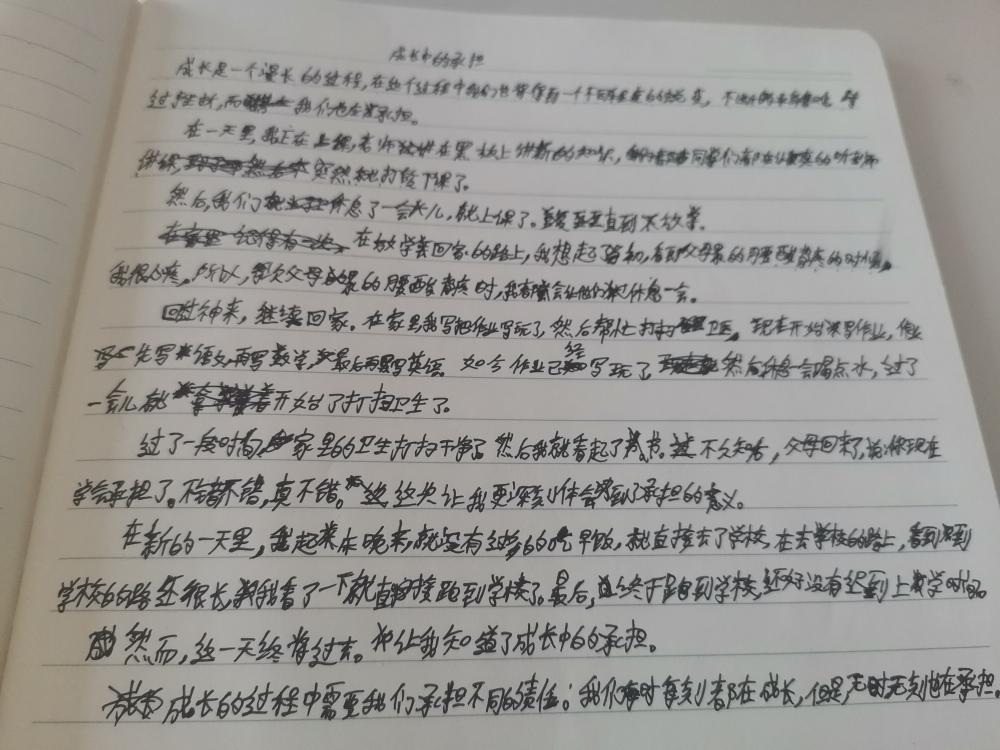 成长中的承担
成长是一个漫长的过程,在这个过程中我们也都会有一个不同程度的蜕变,不
过,而我们也在承担。
在一天里,我正在上课,老师在黑板上讲新的知识,同学们都在认真的听老师
讲课,突然就打铃下课了。
然后,我们休息了一会儿,就上课了。直到下午放学。
在放学回家的路上,我想起了当初,看到父母累的腰酸背疼的时候,
我很心疼,所以,每次父母累的腰酸背疼时,我都会让他们休息一会。
回过神来,继续回家。在家里我写把作业写玩了,然后帮忙打扫卫生,现在开始写作业,作业
先写语文,再写数学,最后再写英语。如今作业已经写玩了,然后休息一会喝点水,过了
一会儿就开始了打扫卫生了。
过了一段时间,家里的卫生打扫干净了,然后我就看起了书。不久知否,父母回来了,说你现在
学会承担了。不错不错,真不错。这次让我更深刻体会到了承担的意义。
在新的一天里,我起来床晚来,就没有过多的吃早饭,就直接去了学校,在去学校的路上,看到
学校的路还很长,我看了一下就直接跑到学校了。最后,终于跑到学校,还好没有迟到上学时间。
然而,这一天终将过去。却让我知道了成长中的承担。
成长的过程中需要我们承担不同的责任;我们每时每刻都在成长,但是无时无刻也在承担。